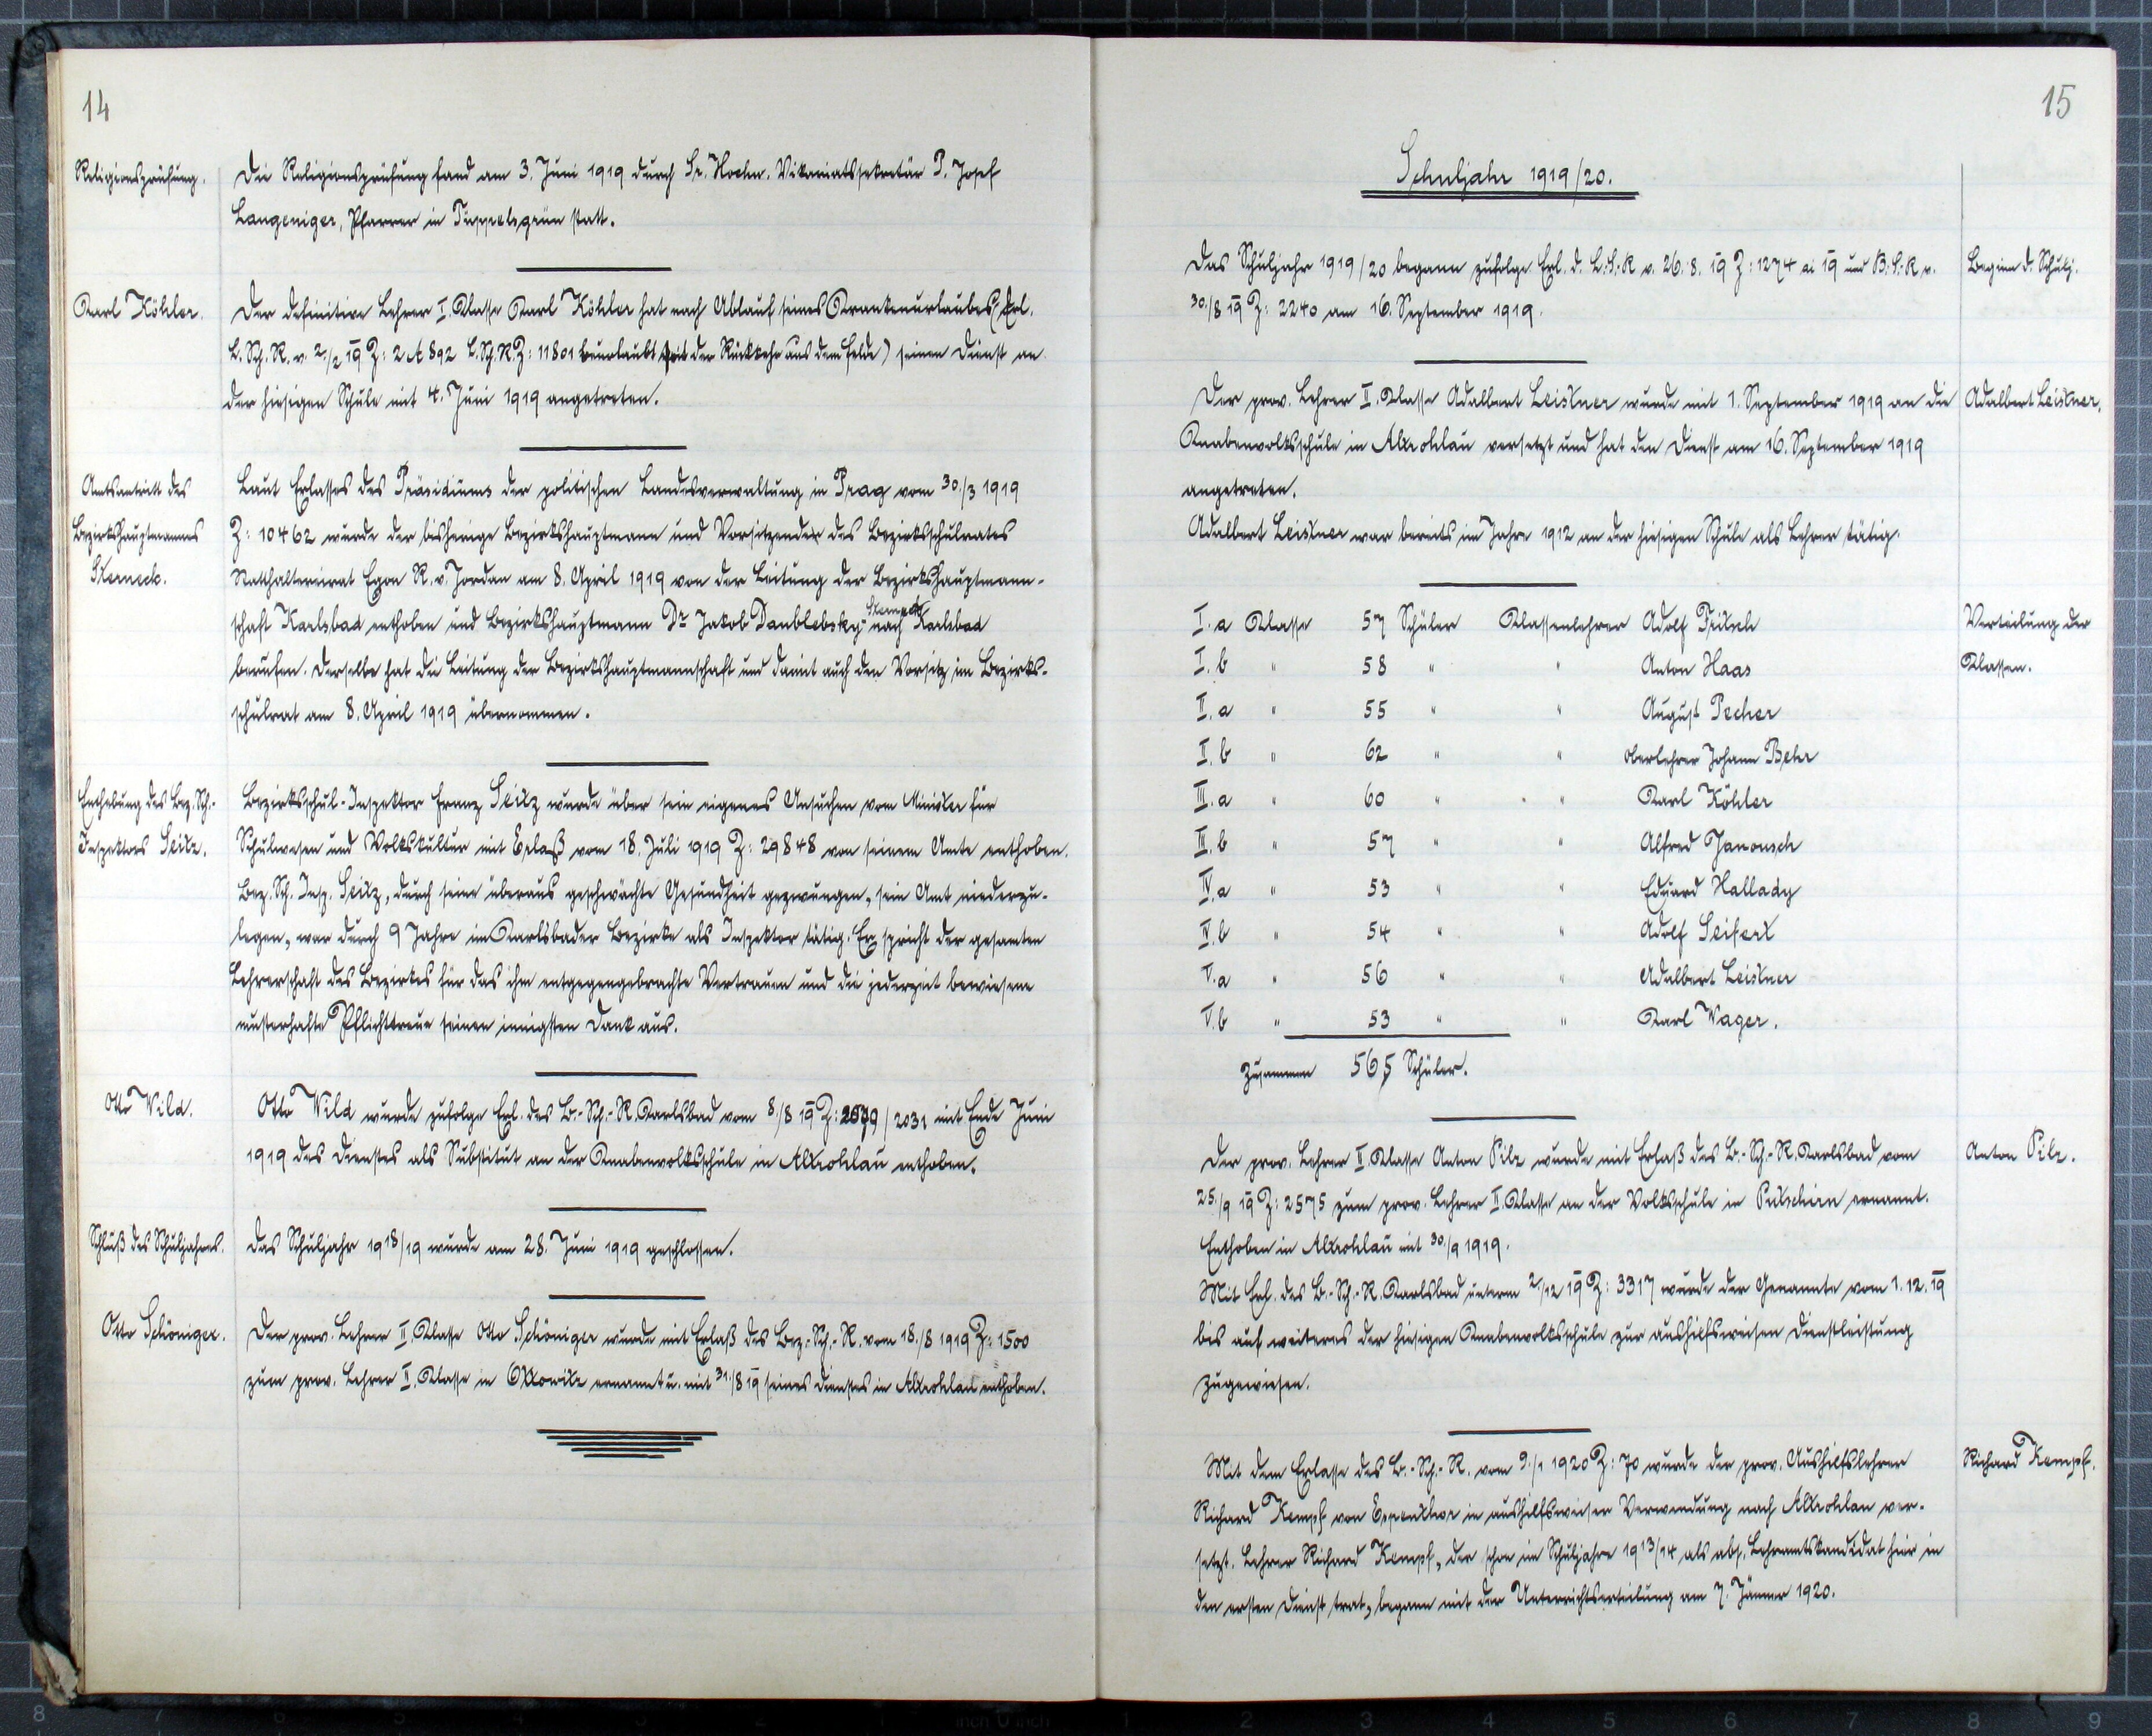 14
Religionsprüfung.
Die Religionsprüfung fand am 3. Juni 1919 durch Sr. Hochw. Vikariatssekretär P. Josef
Langeniger, Pfarrer in Tüppelsgrün statt.
Karl Köhler.
Der definitive Lehrer I. Klasse Karl Köhler hat nach Ablauf seines Krankenurlaubes (Erl.
L. Sch. R. v. 2./2 19 Z: 2 A 892 L. Sch. R. Z: 11801 beurlaubt seit der Rückkehr aus dem Felde) seinen Dienst an
der hiesigen Schule mit 4. Juni 1919 angetreten.
Amtsantritt des
Bezirkshauptmannes
Sterneck.
Laut Erlasses des Präsidiums der politischen Landesverwaltung in Prag vom 30./3 1919
Z: 10462 wurde der bisherige Bezirkshauptmann und Vorsitzender des Bezirksschulrates
Statthaltereirat Egon R. v. Jordan am 8. April 1919 von der Leitung der Bezirkshauptmann-
Sterneck
schaft Karlsbad enthoben und Bezirkshauptmann Dr Jakob Daublebsky- nach Karlsbad
berufen. Derselbe hat die Leitung der Bezirkshauptmannschaft und damit auch den Vorsitz im Bezirks-
schulrat am 8. April 1919 übernommen.
Enthebung des Bez. Sch.-
Inspektors Seitz.
Bezirksschul-Inspektor Franz Seitz wurde über sein eigenes Ansuchen vom Minister für
Schulwesen und Volkskultur mit Erlaß vom 18. Juli 1919 Z: 29848 von seinem Amte enthoben.
Bez. Sch. Insp. Seitz, durch seine überaus geschwächte Gesundheit gezwungen, sein Amt niederzu-
legen, war durch 9 Jahre im Karlsbader Bezirke als Inspektor tätig. Er spricht der gesamten
Lehrerschaft des Bezirkes für das ihm entgegengebrachte Vertrauen und die jederzeit bewiesene
musterhafte Pflichttreue seinen innigsten Dank aus.
Otto Wild.
Otto Wild wurde zufolge Erl. des B.-Sch.-R. Karlsbad vom 8./8 19 Z: 2079/2031 mit Ende Juni
1919 des Dienstes als Substitut an der Knabenvolksschule in Altrohlau enthoben.
Schluß des Schuljahres.
Das Schuljahr 1918/19 wurde am 28. Juni 1919 geschlossen.
Otto Schöniger.
Der prov. Lehrer II. Klasse Otto Schöniger wurde mit Erlaß des Bez.-Sch.-R. vom 18./8 1919 Z: 1500
zum prov. Lehrer II. Klasse in Ottowitz ernannt u. mit 31./8 19 seines Dienstes in Altrohlau enthoben.
15
Schuljahr 1919/20.
Das Schuljahr 1919/20 begann zufolge Erl. d. L.-S.-R v. 26. 8. 19 Z: 1274 ai 19 und B.-S.-R v.
30./8 19 Z: 2240 am 16. September 1919.
Beginn d. Schulj.
Der prov. Lehrer II. Klasse Adalbert Leistner wurde mit 1. September 1919 an die
Knabenvolksschule in Altrohlau versetzt und hat den Dienst am 16. September 1919
angetreten.
Adalbert Leistner war bereits im Jahre 1912 an der hiesigen Schule als Lehrer tätig.
Adalbert Leistner.
I. a Klasse 57 Schüler Klassenlehrer Adolf Fritsch
I. b " 58 " " Anton Haas
II. a " 55 " " August Pecher
II. b " 62 " " Oberlehrer Johann Behr
III. a " 60 " " Karl Köhler
III. b " 57 " " Alfred Janousch
IV. a " 53 " " Eduard Hallady
IV. b " 54 " " Adolf Seifert
V. a " 56 " " Adalbert Leistner
V. b " 53 " " Karl Wager.
Zusammen 565 Schüler.
Verteilung der
Klassen.
Der prov. Lehrer II. Klasse Anton Pilz wurde mit Erlaß des B.-Sch.-R. Karlsbad vom
25./9 19 Z: 2575 zum prov. Lehrer II. Klasse an der Volksschule in Putschirn ernannt.
Enthoben in Altrohlau mit 30./9 1919.
Mit Erl. des B.-Sch.-R. Karlsbad unterm 2./12 19 Z: 3317 wurde der Genannte vom 1. 12. 19
bis auf weiteres der hiesigen Knabenvolksschule zur aushilfsweisen Dienstleistung
zugewiesen.
Anton Pilz.
Mit dem Erlasse des B.-Sch.-R. vom 9./1 1920 Z: 70 wurde der prov. Aushilfslehrer
Richard Kempf von Espenthor in aushilfsweiser Verwendung nach Altrohlau ver-
setzt. Lehrer Richard Kempf, der schon im Schuljahre 1913/14 als abs. Lehramtskandidat hier in
den ersten Dienst trat, begann mit der Unterrichtserteilung am 7. Jänner 1920.
Richard Kempf.